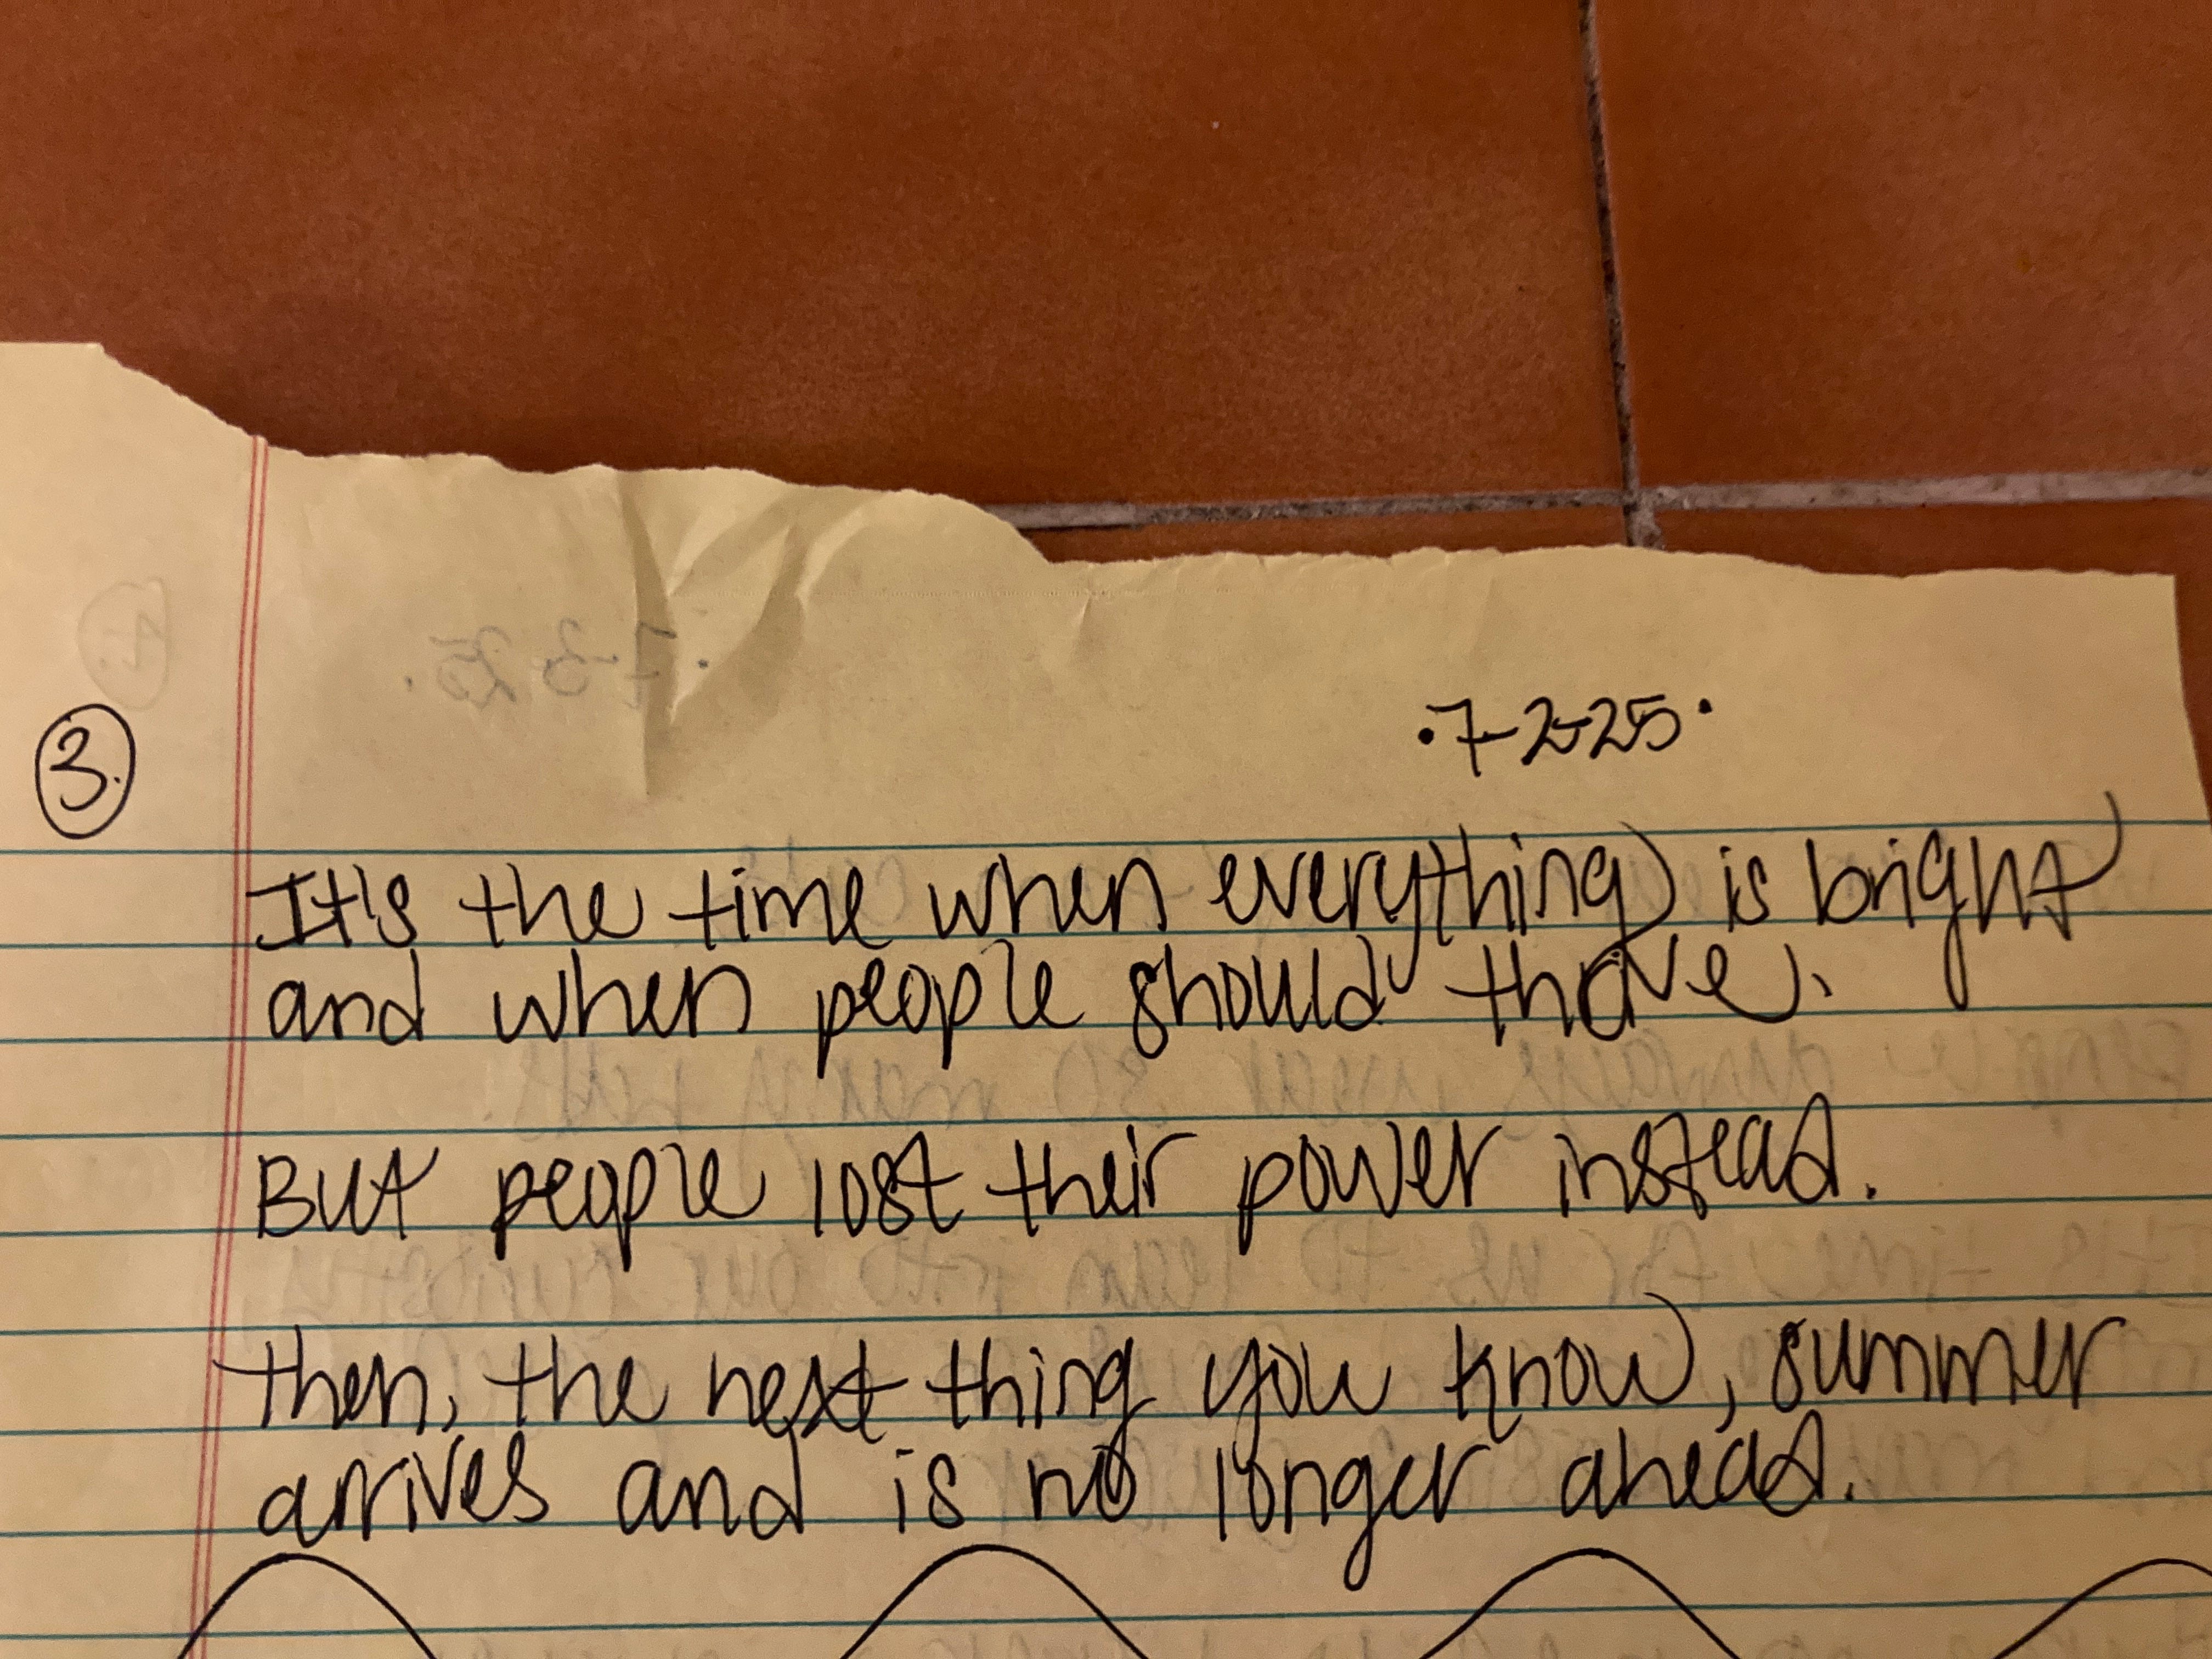 ·7-2-25·
3.
It's the time when everything is bright
and when people should thrive.
But people lost their power instead.
Then, the next thing you know, summer
arrives and is no longer ahead.